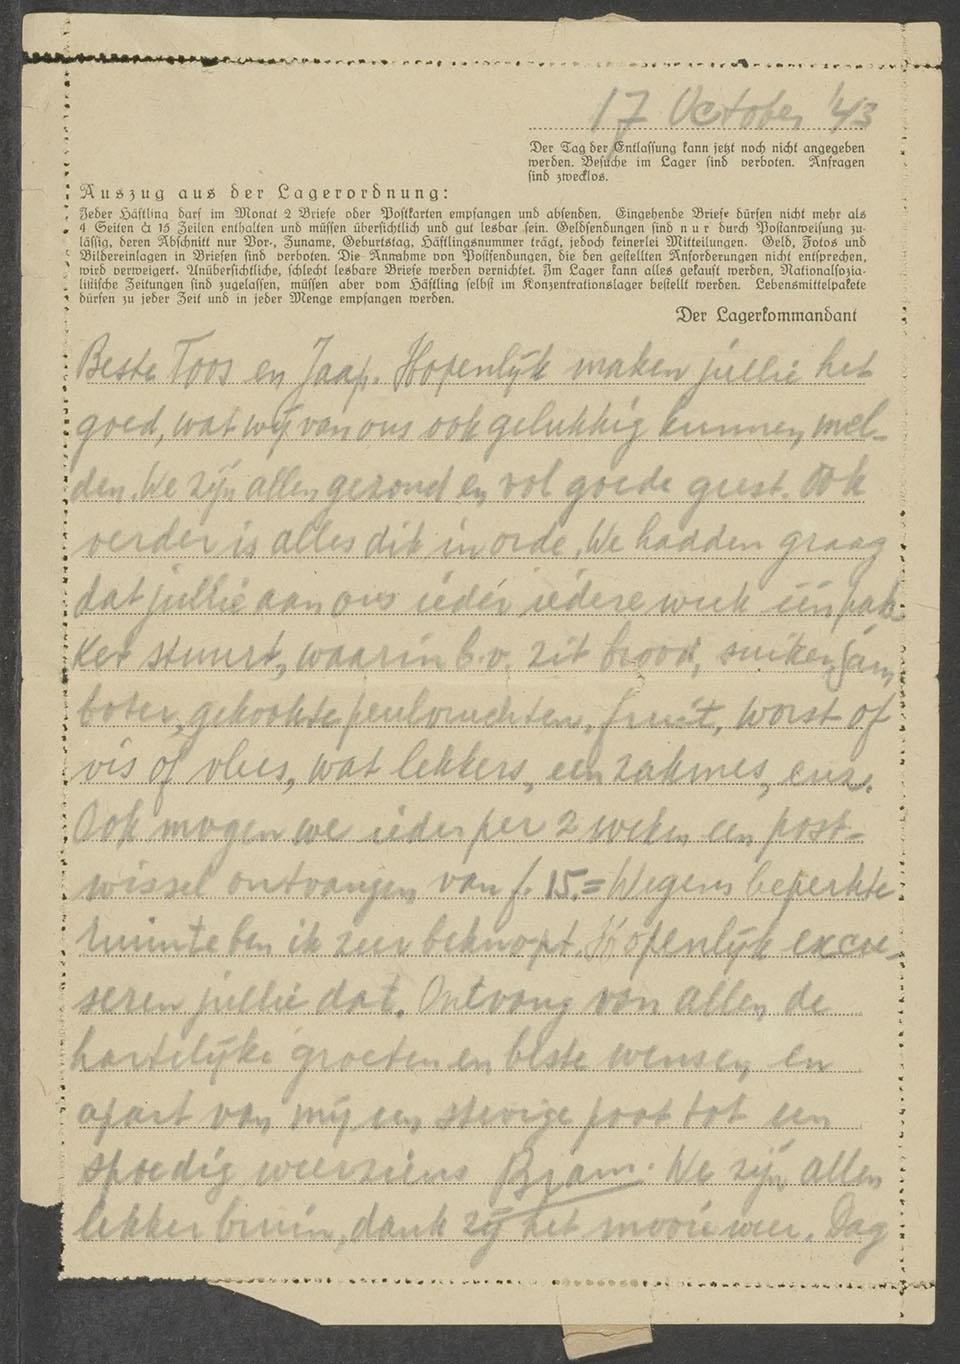 17 October '43
Der Tag der Entlassung kann jetzt noch nicht angegeben
werden. Besuche im Lager sind verboten. Anfragen
sind zwecklos.
Auszug aus der Lagerordnung:
Jeder Häftling darf im Monat 2 Briefe oder Postkarten empfangen und absenden. Eingehende Briefe dürfen nicht mehr als
4 Seiten à 15 Zeilen enthalten und müssen übersichtlich und gut lesbar sein. Geldsendungen sind nur durch Postanweisung zu-
lässig, deren Abschnitt nur Vor-, Zuname, Geburtstag, Häftlingsnummer trägt, jedoch keinerlei Mitteilungen. Geld, Fotos und
Bildereinlagen in Briefen sind verboten. Die Annahme von Postsendungen, die den gestellten Anforderungen nicht entsprechen,
wird verweigert. Unübersichtliche, schlecht lesbare Briefe werden vernichtet. Im Lager kann alles gekauft werden, Nationalsozia-
listische Zeitungen sind zugelassen, müssen aber vom Häftling selbst im Konzentrationslager bestellt werden. Lebensmittelpakete
dürfen zu jeder Zeit und in jeder Menge empfangen werden.
Der Lagerkommandant
Beste Toos en Jaap. Hopenlijk maken jullie het
goed, wat wij van ons ook gelukkig kunnen mel-
den. We zijn allen gezond en vol goede geest. Ook
verder is alles dik in orde. We hadden graag
dat jullie aan ons ieder iedere week één pak-
ket stuurt, waarin b.v. zit brood, suiker, jam,
boter, gekookte peulvruchten, fruit, worst of
vis of vlees, wat lekkers, een zakmes, enz.
Ook mogen we ieder per 2 weken een post-
wissel ontvangen van f. 15.= Wegens beperkte
ruimte ben ik zeer beknopt. Hopenlijk excu-
seren jullie dat. Ontvang van allen de
hartelijke groeten en beste wensen en
apart van mij een stevige poot tot een
spoedig weerziens Bram. We zijn allen
lekker bruin, dank zij het mooie weer. Dag